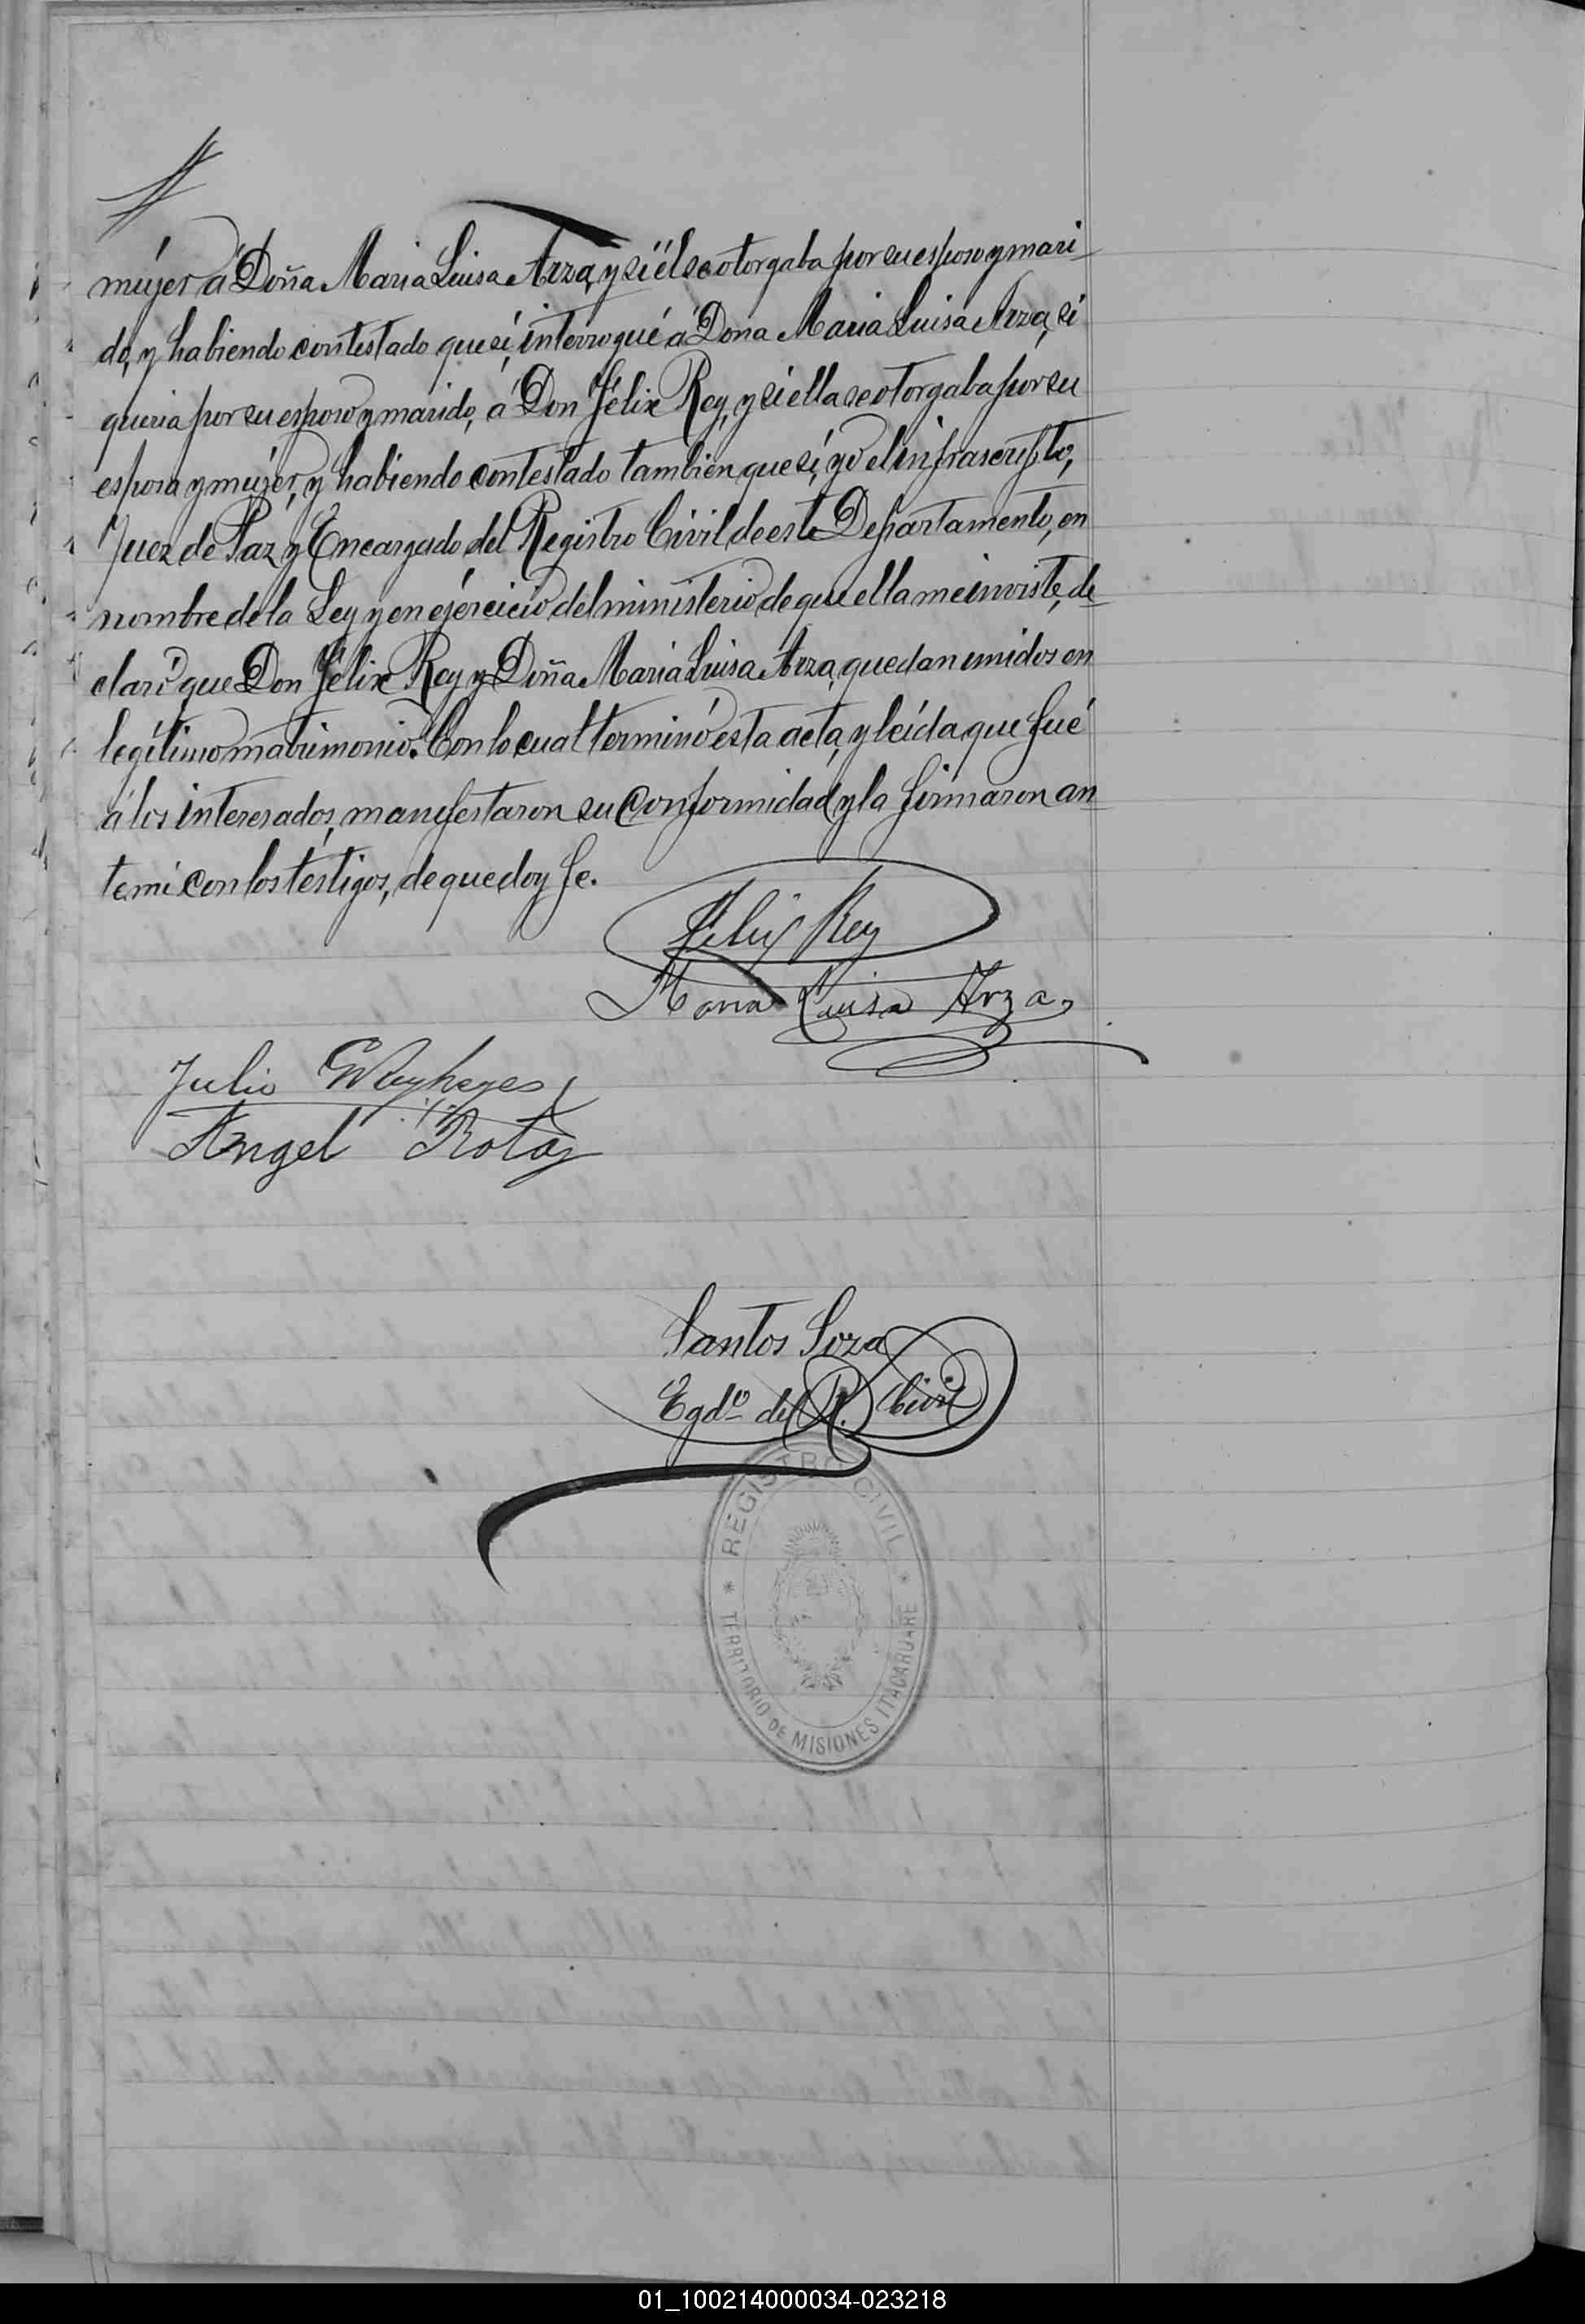 mujer á Doña Maria Luisa Arza, y si él se otorgaba por su esposo y mari-
do, y habiendo contestado que sí, interrogué á Doña Maria Luisa Arza, si
queria por su esposo y marido, á Don Félix Rey, y si ella se otorgaba por su
esposa y mujer, y habiendo contestado tambien que sí, yó el infrascripto,
Juez de Paz y Encargado del Registro Civil de este Departamento, en
nombre de la Ley y en ejercicio del ministerio de que ella me inviste, de-
claré que Don Félix Rey y Doña Maria Luisa Arza, quedan unidos en
legítimo matrimonio. Con lo cual terminó esta acta, y leída que fué
á los interesados, manifestaron su conformidad y la firmaron an
te mi con los testigos, de que doy fe.
Felix Rey
Maria Luisa Arza
Julio
Angel Rotas
Santos Soza
Egdo del R. Civil
REGISTRO CIVIL
TERRITORIO DE MISIONES ITACARUARE
01_100214000034-023218